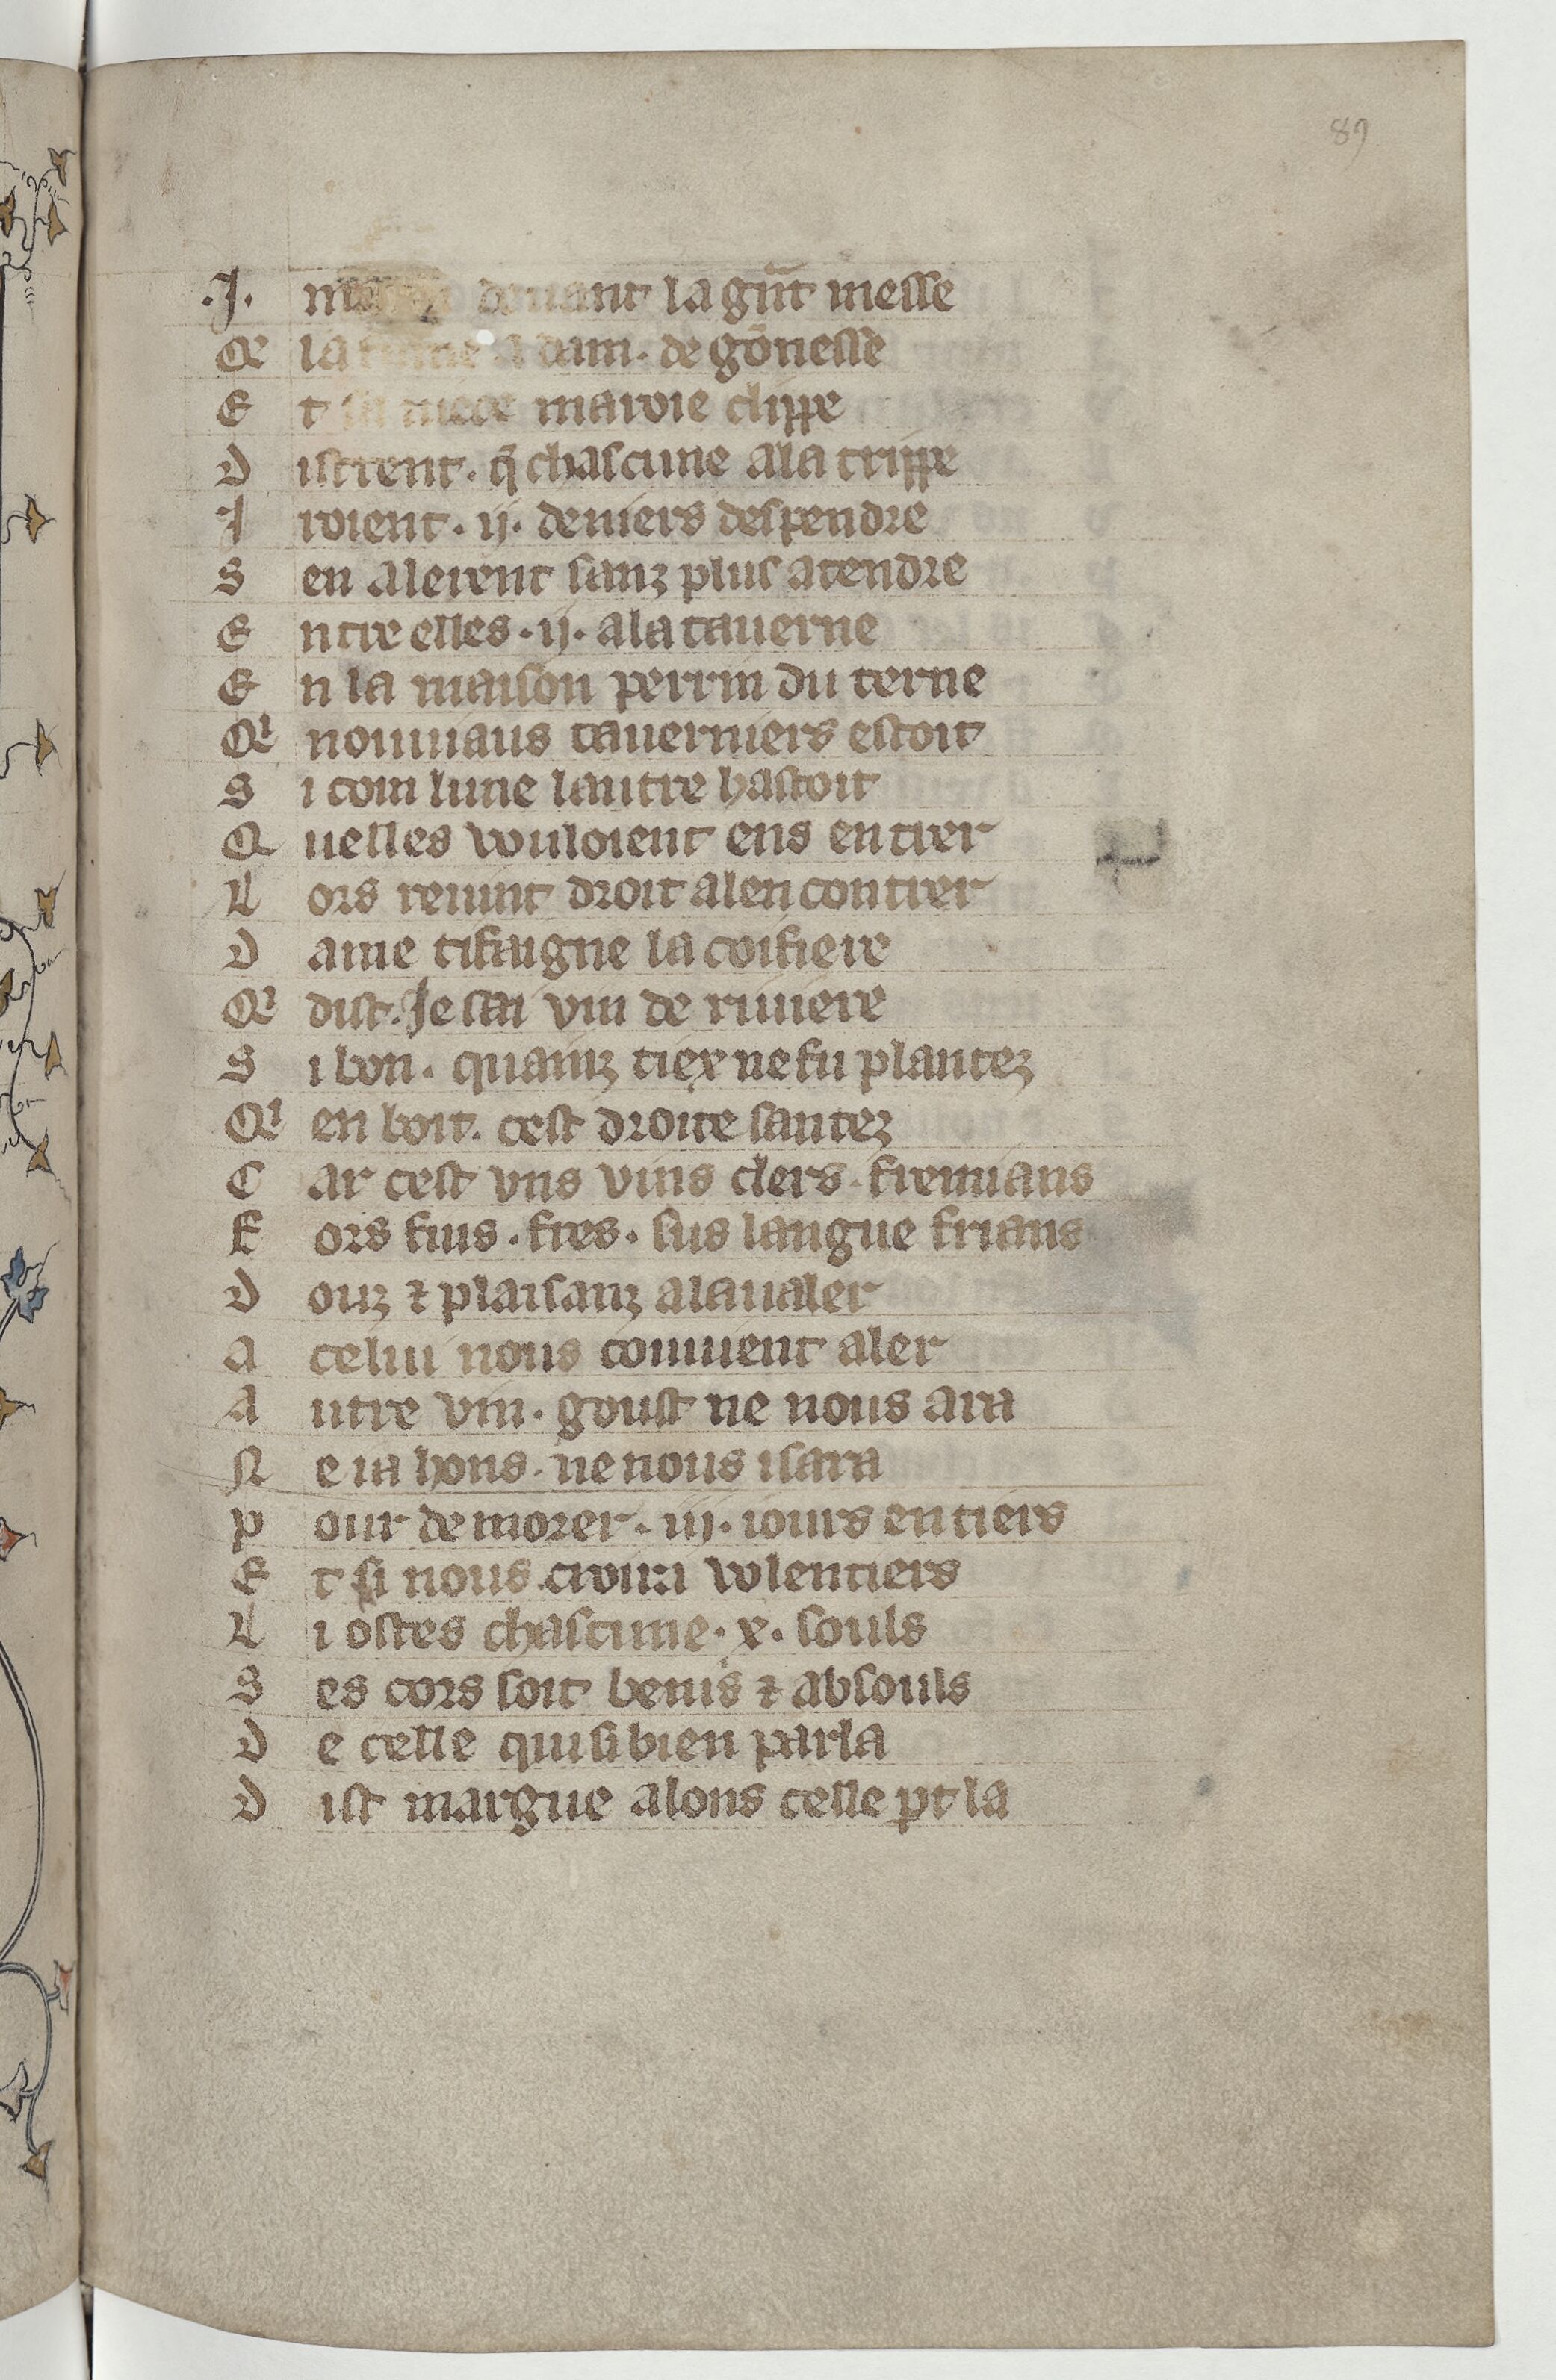 89
.J. m deuant la gñt messe
Q̃ la a dam. de gōnesse
E t sa niece maroie clippe
D istrent. q̃ chascune a la trippe
I roient. ij. deniers despendre
S en alerent sanz plus atendre
E ntre elles. ij. a la tauerne
E n la maison perrin du terne
Qⁱ nouuiaus tauerniers estoit
S i com lune lautre hastoit
Q uelles vouloient ens entrer
L ors reuint droit alencontrer
D ame tifaigne la coifiere
Qⁱ dist. Je scai vin de riuiere
S i bon. quainz tiex ne fu plantez
Qⁱ en boit. cest droite santez
C ar cest vns vins clers. fremians
F ors fins. fres. sus langue frians
D ouz ⁊ plaisanz alaualer
A celui nous couuient aler
A utre vin. goust ne nous ara
N e ia hons. ne nous i sara
P our demorer. iij. iours entiers
E t si nous croira volentiers
L i ostes chascune. x. souls
S es cors soit benis ⁊ absouls
D e celle qui si bien parla
D ist margue alons celle pt la